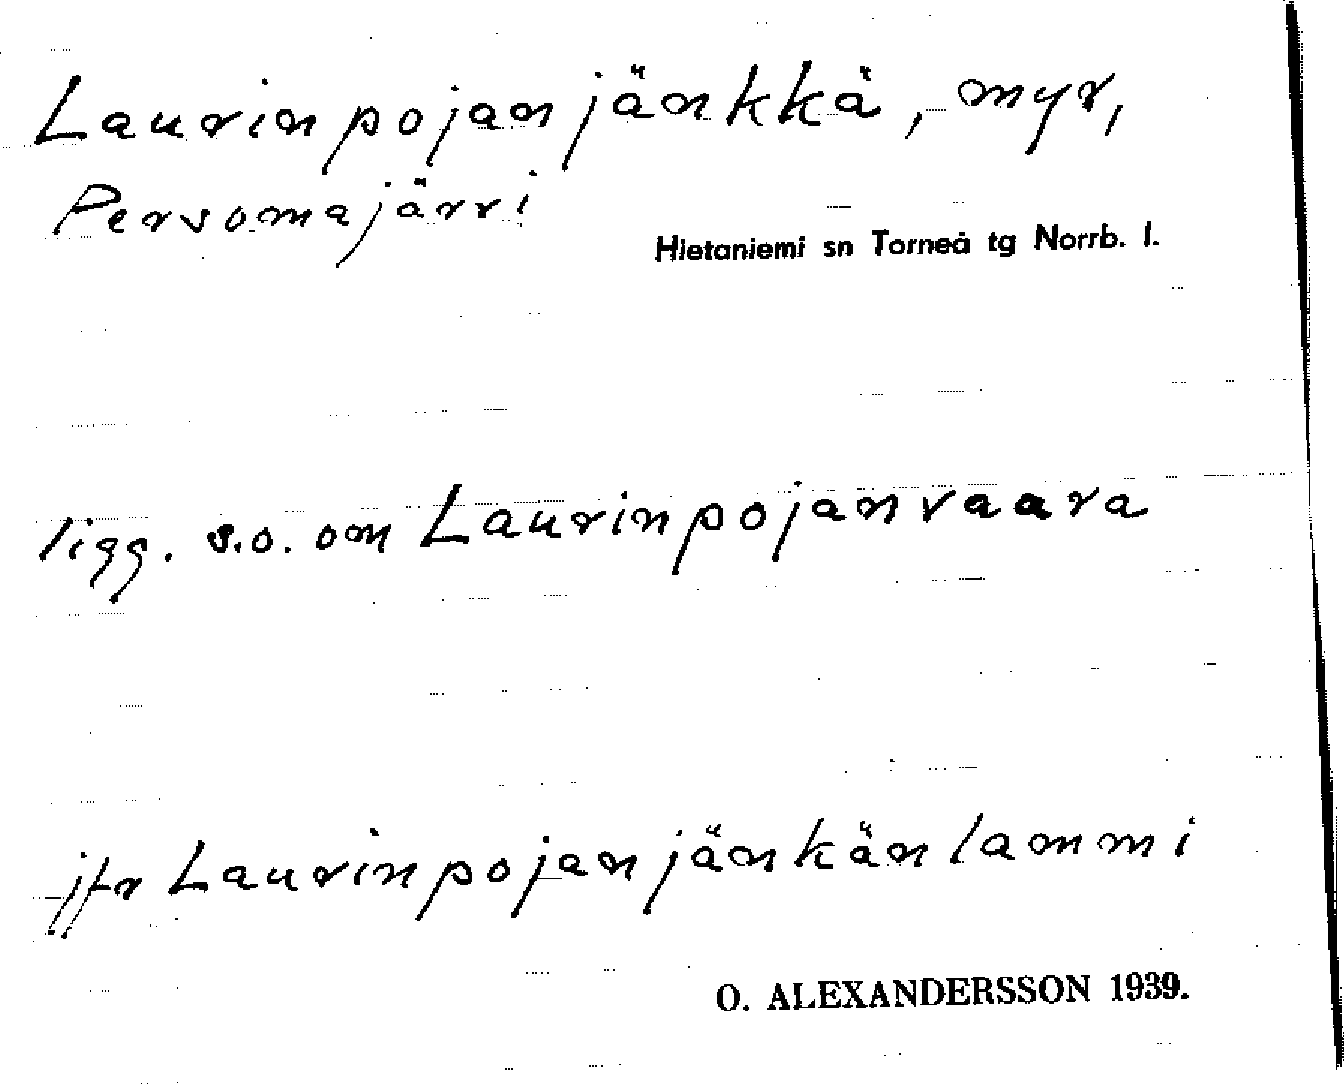 Laurinpojanjänkkä, myr,
Persomajärvi
Hietaniemi sn Torneå tg Norrb. l.
ligg. s.o. om Laurinpojanvaara
jfr Laurinpojanjänkänlammi
O. ALEXANDERSSON 1939.